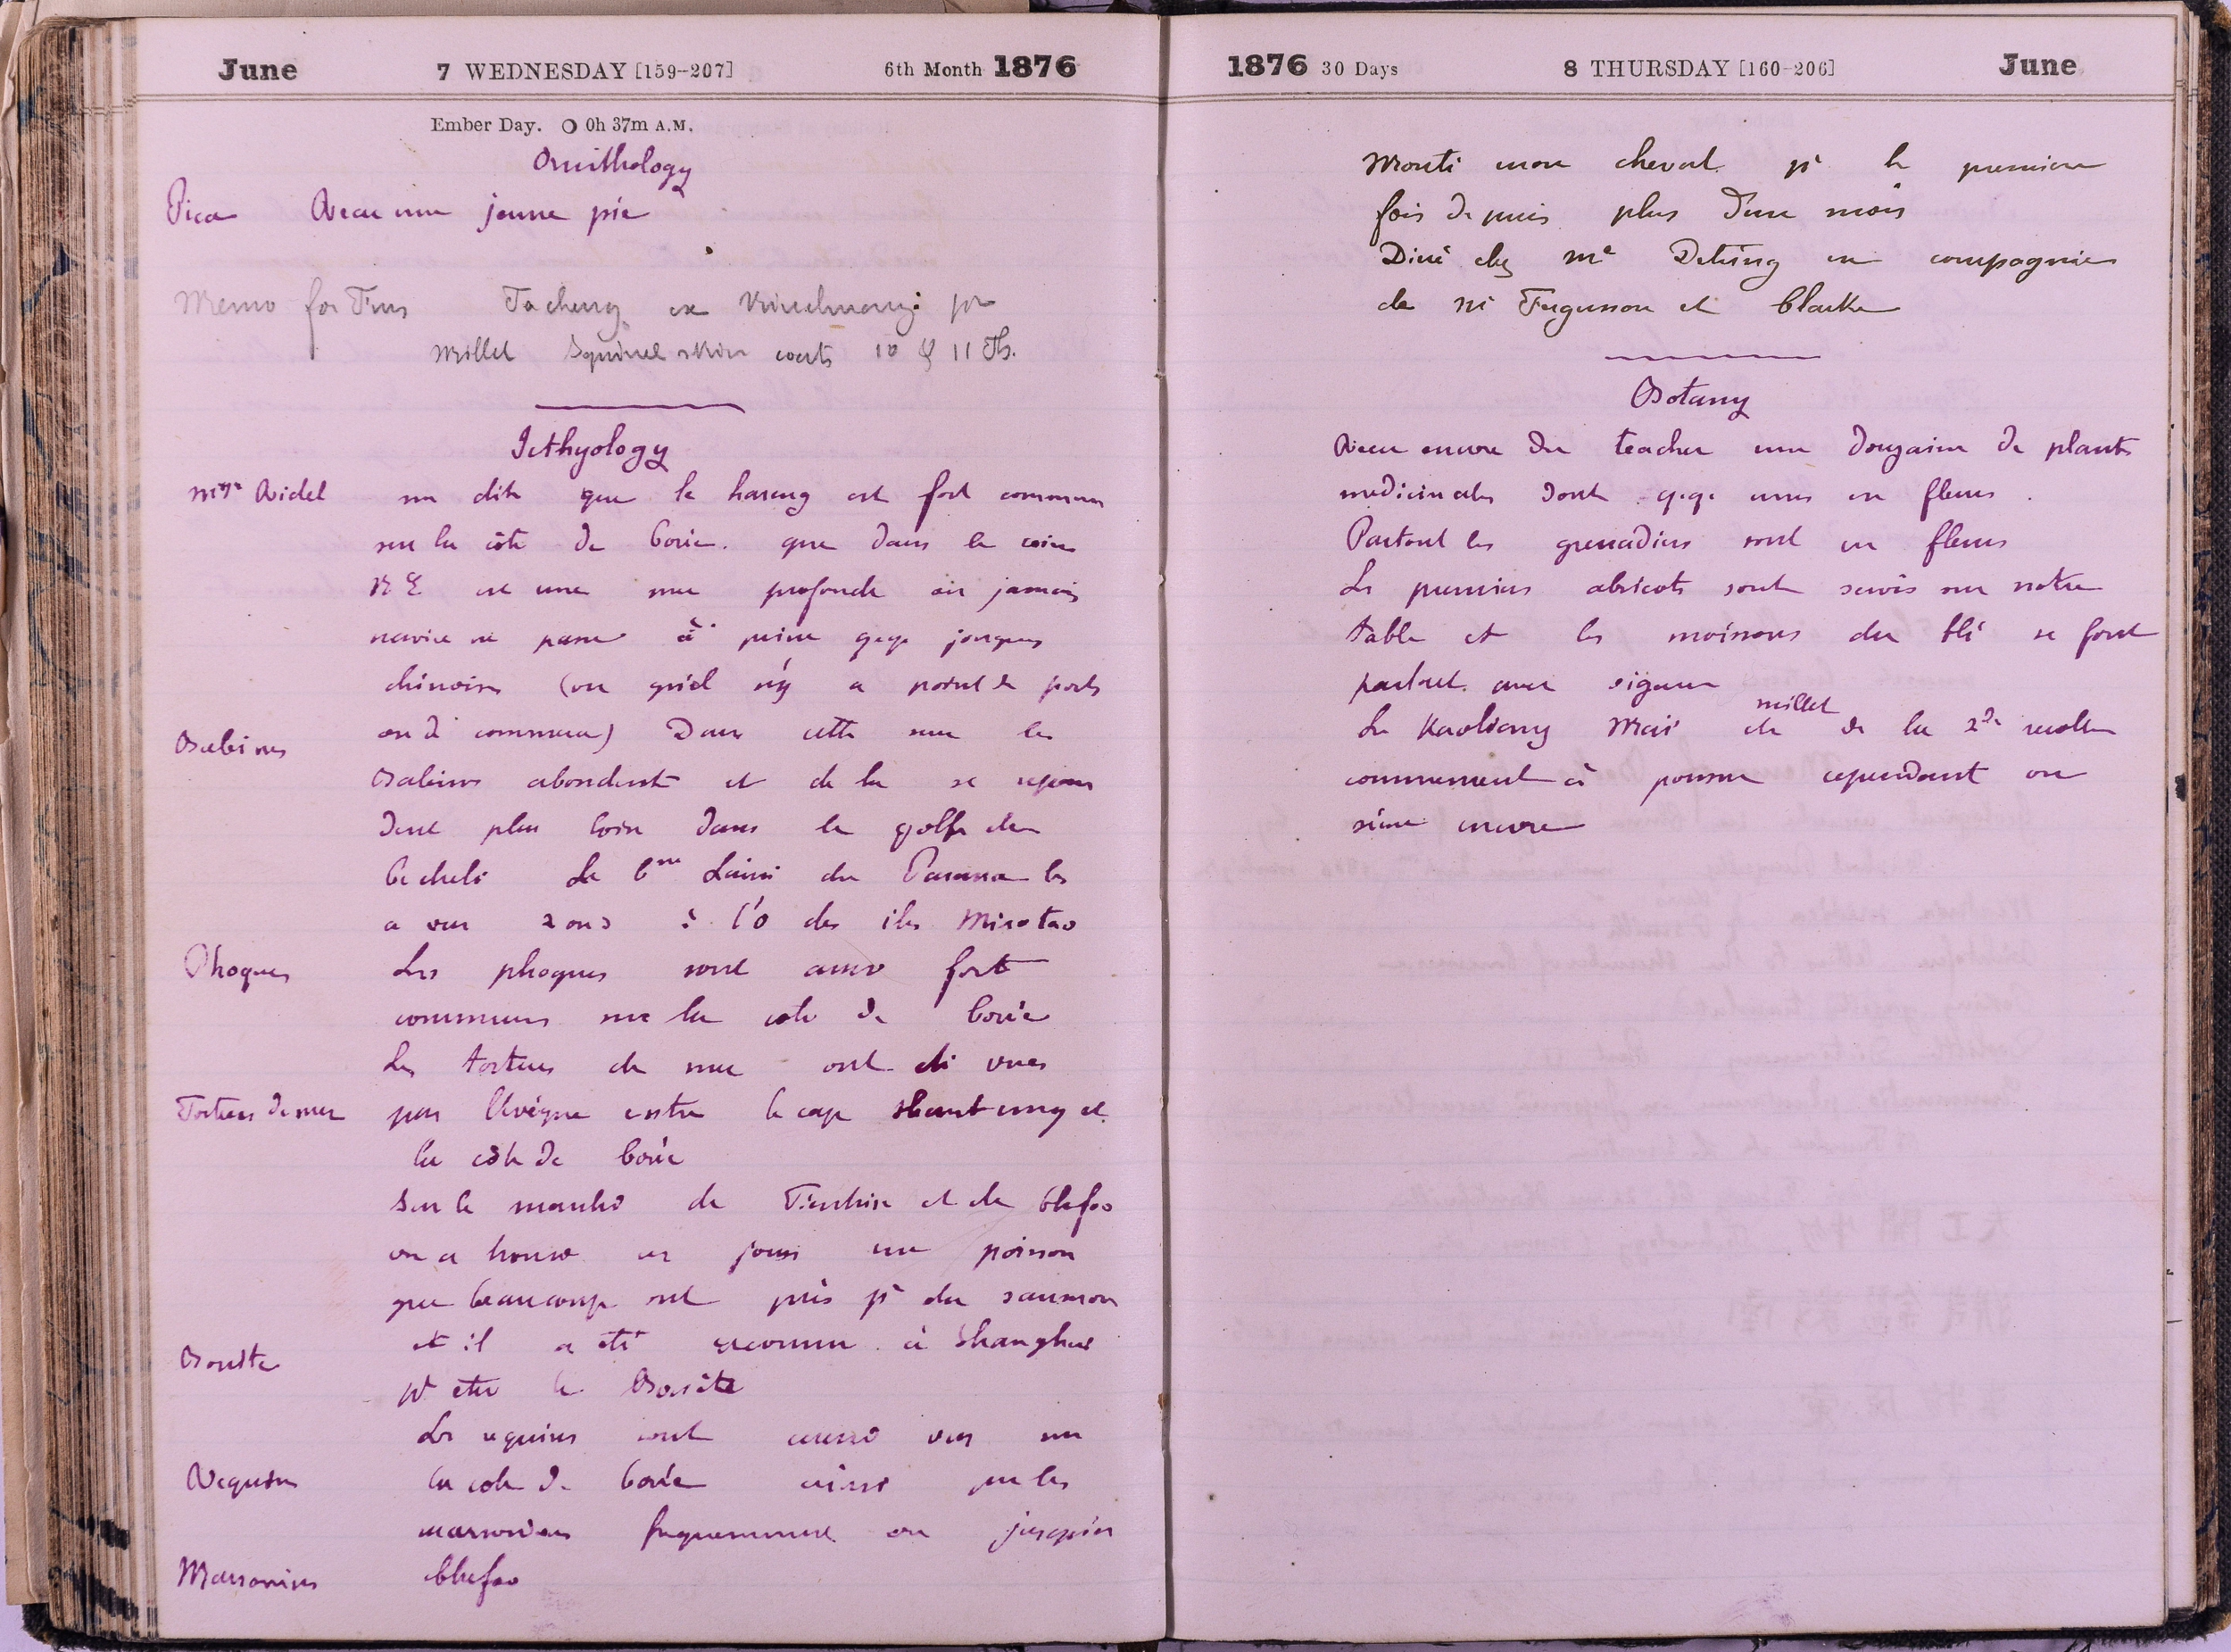 June 7 WEDNESDAY [159-207] 6th Month 1876
Ember Day. ❍ 0h 37m A.M.
Ornithology
Pica Recu une jeune pie
Memo for Furs Tacheng ex pr
Millet Squirrel skin coats 10 & 11 Th.
Icthyology
Mgr Ridel me dit que le hareng est fort commun
sur la côte de Corée. que dans le coin
N E est une mer profonde où jamais
navire ne passe à peine qqe jonques
chinoises (vu qu'il n'y a point de ports
ou de commerce) Dans cette mer les
Baleines
Baleines abondent et de la se repan
dent plus loin dans le golfe du
Pecheli Le Cne du Parana les
a vu 2 ou 3 à l'O des iles Miaotao
Phoques Les phoques sont aussi fort
communs sur la cote de Corée
Les tortues de mer ont été vues
Tortues de mer par l'évêque entre le cap Shantung et
la côte de Corée
Sur le marché de Tientsin et de Chefoo
on a trouvé ces jours un poisson
que beaucoup ont pris pr du saumon
et il a été reconnu à Shanghai
Bonite
pr etre le Bonite
Les requins sont aussi vus sur
Requins la cote de Corée ainsi que les
marsouins frequemment ou jusqu'à
Marsouins Chefoo
1876 30 Days 8 THURSDAY [160-206] June
Monté mon cheval pr la premiere
fois depuis plus d'un mois
Diné chez Mr Detring en compagnie
de Mr Fergusson et Clarke
Botany
Recu encore du teacher une douzaine de plants
medicinales dont qqe unes en fleurs.
Partout les grenadiers sont en fleurs
Les premiers abricots sont servis sur notre
table et les moissons du blé se font
partout avec vigueur
millet
Le Kaoliang Mais de la 2de recolte
commencent à pousser cependant on
séme encore